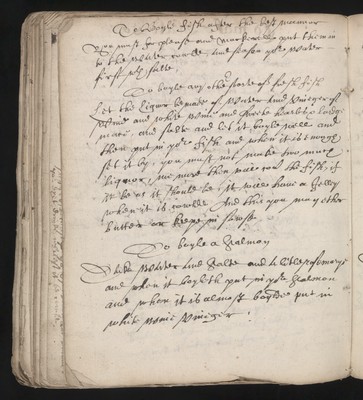 To boyle fish after the best manner
You must be pleuse and mackerell put them in
to the water could and season your water
first with salte
To boyle any other sorte of fresh fish
Let the liquor be made of water and viniger of
wine and white wine and sweete hearbes a large
mace, and salte and let it boyle well and
then put in your fish and when it is enough
set it by, you must not make too much
liquor, no more then will couer the fish, if
it be as it should be it will haue a Jelly
when it is could. And this you may ether
butter or keepe in sowse
To boyle a Salmon
Take water and Salte and a little rosemary
and when it boyleth put in your Salmon
and when it is almost boyled put in
white wine viniger.